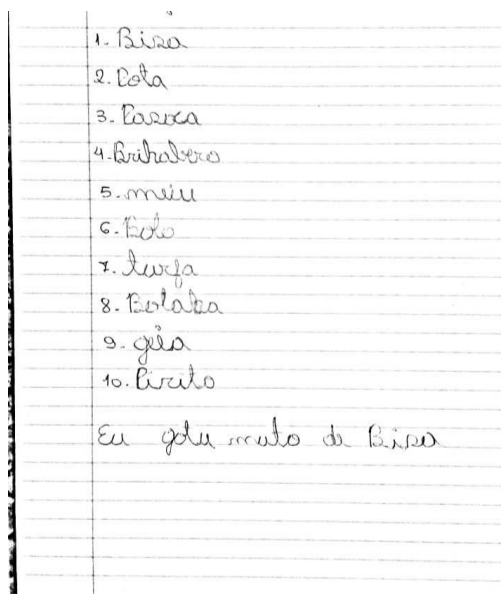 1. Bisa
2. Cota
3. Pasoca
4. Brihabero
5. meiu
6. Bolo
7. turfa
8. Bolaba
9. géia
10. Pirito
Eu gotu muto de Bisa